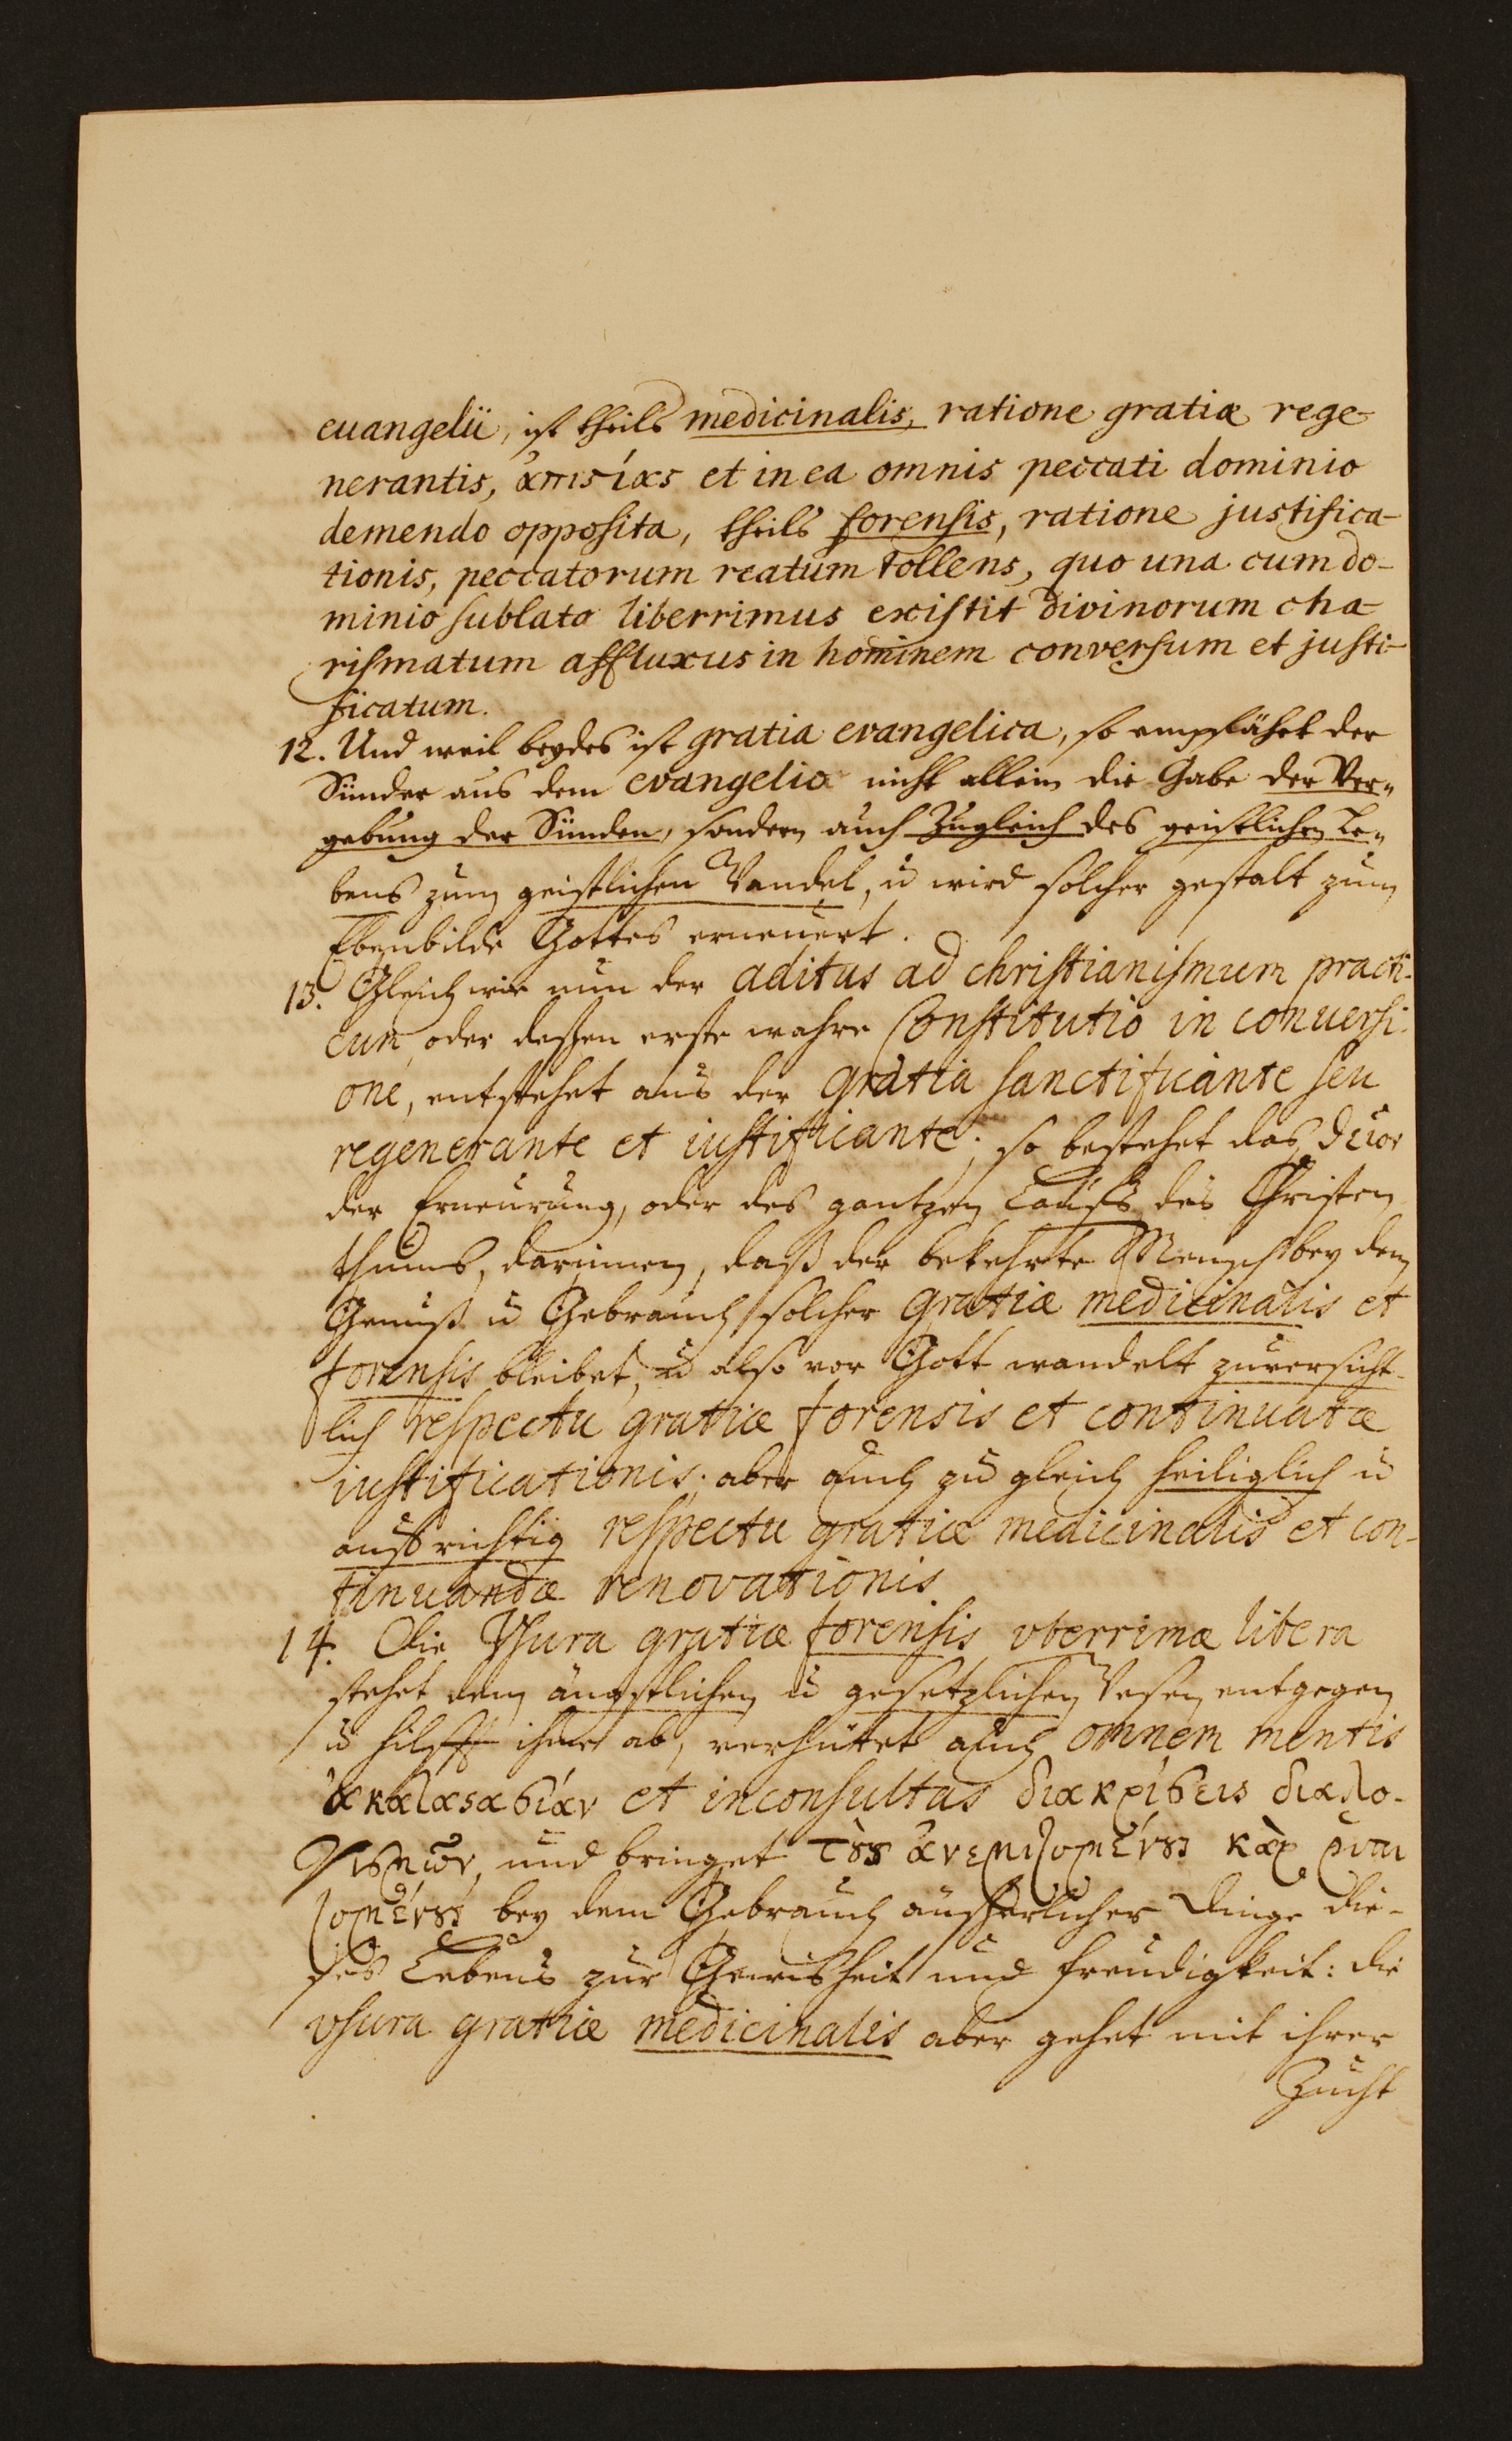 euangelii, ist theils medicinalis, ratione gratiæ rege-
nerantis, ἀπιςίας et in ea omnis peccati dominio
demendo opposita, theils forensis, ratione justifica-
tionis, peccatorum reatum tollens, quo una cum do-
minio sublato liberrimus existit divinorum cha-
rismatum affluxus in hominem conversum et justi-
ficatum.
12. Und weil beydes ist gratia evangelica, so empfähet der
Sünder aus dem evangelio nicht allein die Gabe der Ver-
gebung der Sünden, sondern auch zugleich des geistlichen Le-
bens zum geistlichen Wandel, u wird solcher gestalt zum
Ebenbilde Gottes erneuert.
13. Gleich wie nun der aditus ad christianismum practi-
cum oder deßen erste wahre Constitutio in conuersi-
one, entstehet aus der gratia sanctificante seu
regenerante et iustificante; so bestehet das
der Erneurung, oder des gantzen Lauffs des Christen
thums, darinnen, daß der bekehrte Mensch bey dem
Genuß u Gebrauch solcher gratiæ medicinalis et
forensis bleibet, u also vor Gott wandelt zuversicht-
lich respectu gratiæ forensis et continuatæ
iustificationis; aber auch zu gleich heiliglich u
auffrichtig respectu gratiæ medicinalis et con-
tinuandæ renovationis
14. Die Vsura gratiæ forensis vberrima libera
stehet dem ängstlichen u gesetzlichen Wesen entgegen
u hilfft ihme ab, verhütet auch omnem mentis
et inconsultas διακρίσεις διαλο-
γισμῶν, und bringet
bey dem Gebrauch äusserlicher Dinge die-
ses Lebens zur Gewisheit und freudigkeit: die
vsura gratiæ medicinalis aber gehet mit ihrer
Zucht